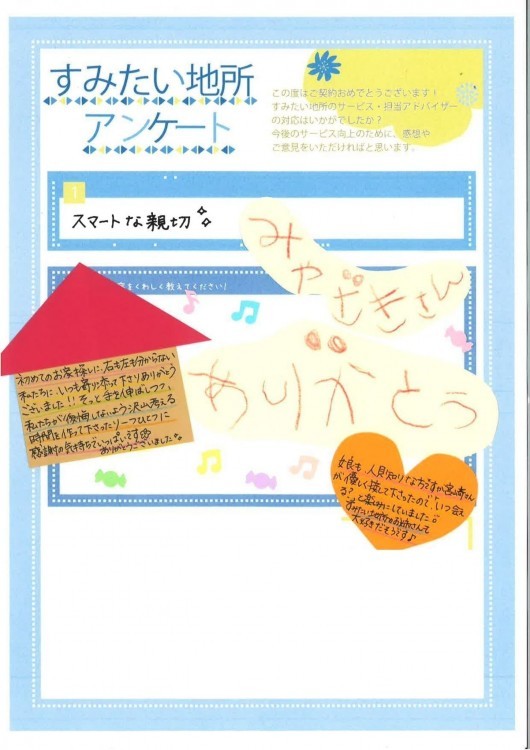 すみたい地所
アンケート
この度はご契約おめでとうございます！
すみたい地所のサービス・担当アドバイザー
の対応はいかがでしたか？
今後のサービス向上のために、感想や
ご意見をいただければと思います。
1
スマートな親切
みやざきさん
をくわしく教えてください！
ありがとう
初めてのお家探しに、右も左も分からない
私たちに、いつも寄り添って下さりありがとう
ございました!! そっと手を伸ばしつつ、
私たちが後悔しないよう沢山考える
時間を作って下さったり一つひとつに
感謝の気持ちでいっぱいです
ありがとうございました
娘も人見知りな方ですが宮崎さん
が優しく接して下さったので、いつ会え
る？と楽しみにしていました
すみたい地所のお姉さんて
大好きだそうです♪